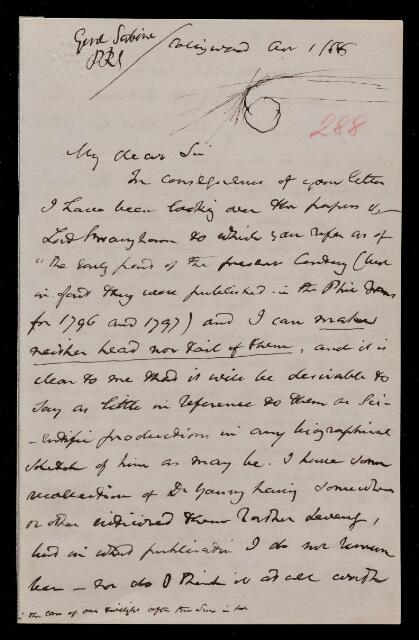 Genl Sabine
PRS
Collingwood
1/66
288
My dear Sir
In consequence of your letter
I have been looking over the papers of
Lord Brougham to which you refer as of
"the early part of the present Century (but
in fact they were published in the Phil Trans
for 1796 and 1797) and I can make
neither head nor tail of them, and it is
clear to me that it will be desirable to
say as little in reference to them as Sci-
-entific productions in any biographical
sketch of him as may be. I have some
recollection of Dr Young having somewhere
or other criticized them rather severely,
but in what publication I do not remem
ber – nor do I think it at all worth
the case of our twilight after the Sun is